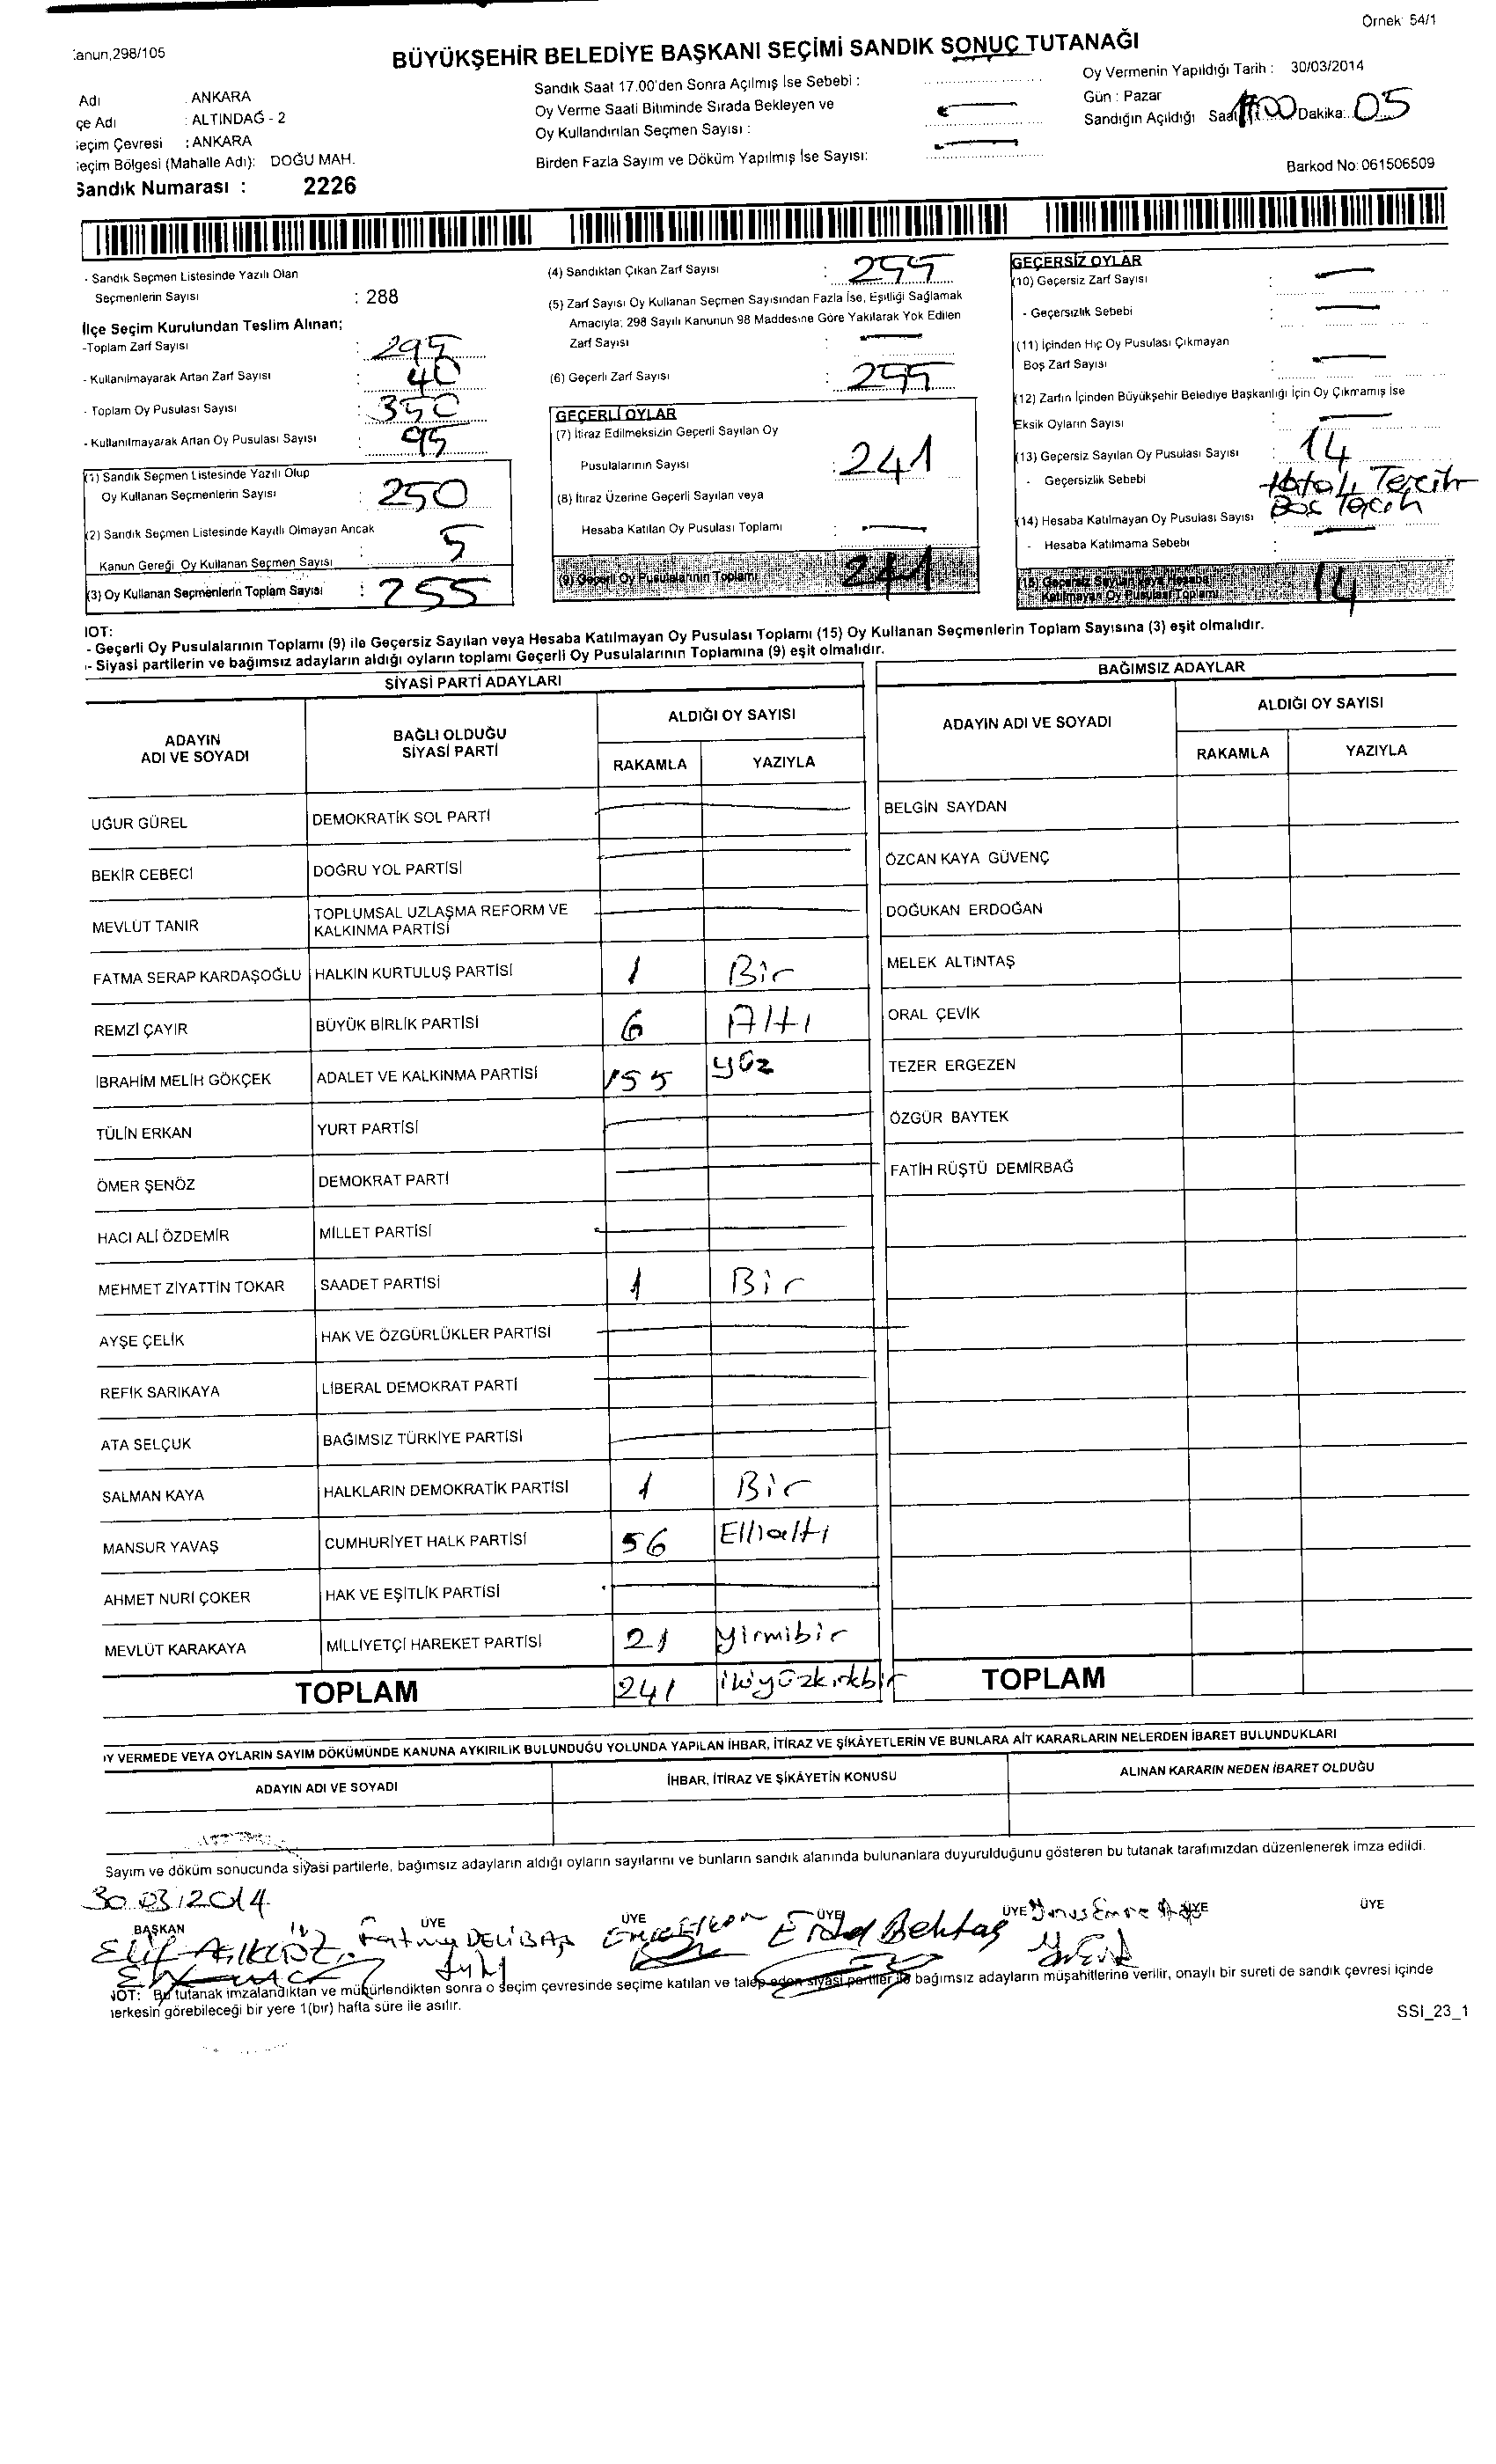 Örnek 54/1
anun,298/105
BÜYÜKŞEHİR BELEDİYE BAŞKANI SEÇİMİ SANDIK SONUÇ TUTANAĞI
Adı : ANKARA
çe Adı : ALTINDAĞ - 2
eçim Çevresi : ANKARA
eçim Bölgesi (Mahalle Adı): DOĞU MAH.
Sandık Numarası : 2226
Sandık Saat 17.00'den Sonra Açılmış İse Sebebi :
Oy Verme Saati Bitiminde Sırada Bekleyen ve
Oy Kullandırılan Seçmen Sayısı :
Birden Fazla Sayım ve Döküm Yapılmış İse Sayısı:
Oy Vermenin Yapıldığı Tarih : 30/03/2014
Gün : Pazar
Sandığın Açıldığı Saat Dakika: 05
Barkod No: 061506509
- Sandık Seçmen Listesinde Yazılı Olan
Seçmenlerin Sayısı : 288
İlçe Seçim Kurulundan Teslim Alınan;
-Toplam Zarf Sayısı : 295
- Kullanılmayarak Artan Zarf Sayısı : 40
- Toplam Oy Pusulası Sayısı : 350
- Kullanılmayarak Artan Oy Pusulası Sayısı : 95
(1) Sandık Seçmen Listesinde Yazılı Olup
Oy Kullanan Seçmenlerin Sayısı : 250
(2) Sandık Seçmen Listesinde Kayıtlı Olmayan Ancak
Kanun Gereği Oy Kullanan Seçmen Sayısı : 5
(3) Oy Kullanan Seçmenlerin Toplam Sayısı : 255
(4) Sandıktan Çıkan Zarf Sayısı : 255
(5) Zarf Sayısı Oy Kullanan Seçmen Sayısından Fazla İse, Eşitliği Sağlamak
Amacıyla; 298 Sayılı Kanunun 98 Maddesine Göre Yakılarak Yok Edilen
Zarf Sayısı :
(6) Geçerli Zarf Sayısı : 255
GEÇERLİ OYLAR
(7) İtiraz Edilmeksizin Geçerli Sayılan Oy
Pusulalarının Sayısı : 241
(8) İtiraz Üzerine Geçerli Sayılan veya
Hesaba Katılan Oy Pusulası Toplamı :
(9) Geçerli Oy Pusulalarının Toplamı 241
GEÇERSİZ OYLAR
(10) Geçersiz Zarf Sayısı :
- Geçersizlik Sebebi :
(11) İçinden Hiç Oy Pusulası Çıkmayan
Boş Zarf Sayısı :
(12) Zarfın İçinden Büyükşehir Belediye Başkanlığı İçin Oy Çıkmamış İse
Eksik Oyların Sayısı
(13) Geçersiz Sayılan Oy Pusulası Sayısı : 14
- Geçersizlik Sebebi Hatalı Tercih
Boş Tercih
(14) Hesaba Katılmayan Oy Pusulası Sayısı
- Hesaba Katılmama Sebebi :
(15) Geçersiz Sayılan veya Hesaba
Katılmayan Oy Pusulası Toplamı 14
NOT:
- Geçerli Oy Pusulalarının Toplamı (9) ile Geçersiz Sayılan veya Hesaba Katılmayan Oy Pusulası Toplamı (15) Oy Kullanan Seçmenlerin Toplam Sayısına (3) eşit olmalıdır.
- Siyasi partilerin ve bağımsız adayların aldığı oyların toplamı Geçerli Oy Pusulalarının Toplamına (9) eşit olmalıdır.
SİYASİ PARTİ ADAYLARI BAĞIMSIZ ADAYLAR
ADAYIN ADI VE SOYADI BAĞLI OLDUĞU SİYASİ PARTİ ALDIĞI OY SAYISI ADAYIN ADI VE SOYADI ALDIĞI OY SAYISI
RAKAMLA YAZIYLA RAKAMLA YAZIYLA
UĞUR GÜREL DEMOKRATİK SOL PARTİ BELGİN SAYDAN
BEKİR CEBECİ DOĞRU YOL PARTİSİ ÖZCAN KAYA GÜVENÇ
MEVLÜT TANIR TOPLUMSAL UZLAŞMA REFORM VE KALKINMA PARTİSİ DOĞUKAN ERDOĞAN
FATMA SERAP KARDAŞOĞLU HALKIN KURTULUŞ PARTİSİ 1 Bir MELEK ALTINTAŞ
REMZİ ÇAYIR BÜYÜK BİRLİK PARTİSİ 6 Altı ORAL ÇEVİK
İBRAHİM MELİH GÖKÇEK ADALET VE KALKINMA PARTİSİ 155 yüz TEZER ERGEZEN
TÜLİN ERKAN YURT PARTİSİ ÖZGÜR BAYTEK
ÖMER ŞENÖZ DEMOKRAT PARTİ FATİH RÜŞTÜ DEMİRBAĞ
HACI ALİ ÖZDEMİR MİLLET PARTİSİ
MEHMET ZİYATTİN TOKAR SAADET PARTİSİ 1 Bir
AYŞE ÇELİK HAK VE ÖZGÜRLÜKLER PARTİSİ
REFİK SARIKAYA LİBERAL DEMOKRAT PARTİ
ATA SELÇUK BAĞIMSIZ TÜRKİYE PARTİSİ
SALMAN KAYA HALKLARIN DEMOKRATİK PARTİSİ 1 Bir
MANSUR YAVAŞ CUMHURİYET HALK PARTİSİ 56 Ellialtı
AHMET NURİ ÇOKER HAK VE EŞİTLİK PARTİSİ
MEVLÜT KARAKAYA MİLLİYETÇİ HAREKET PARTİSİ 21 yirmibir
TOPLAM 241 ikiyüzkırkbir TOPLAM
Y VERMEDE VEYA OYLARIN SAYIM DÖKÜMÜNDE KANUNA AYKIRILIK BULUNDUĞU YOLUNDA YAPILAN İHBAR, İTİRAZ VE ŞİKÂYETLERİN VE BUNLARA AİT KARARLARIN NELERDEN İBARET BULUNDUKLARI
ADAYIN ADI VE SOYADI İHBAR, İTİRAZ VE ŞİKÂYETİN KONUSU ALINAN KARARIN NEDEN İBARET OLDUĞU
Sayım ve döküm sonucunda siyasi partilerle, bağımsız adayların aldığı oyların sayılarını ve bunların sandık alanında bulunanlara duyurulduğunu gösteren bu tutanak tarafımızdan düzenlenerek imza edildi.
30.03.2014
BAŞKAN ÜYE ÜYE ÜYE ÜYE ÜYE ÜYE
Elif Fatma DELİBAŞ Erdal Behtaş Yunus Emre
NOT: Bu tutanak imzalandıktan ve mühürlendikten sonra o seçim çevresinde seçime katılan ve talep eden siyasi partiler ile bağımsız adayların müşahitlerine verilir, onaylı bir sureti de sandık çevresi içinde
herkesin görebileceği bir yere 1(bir) hafta süre ile asılır.
SSI_23_1